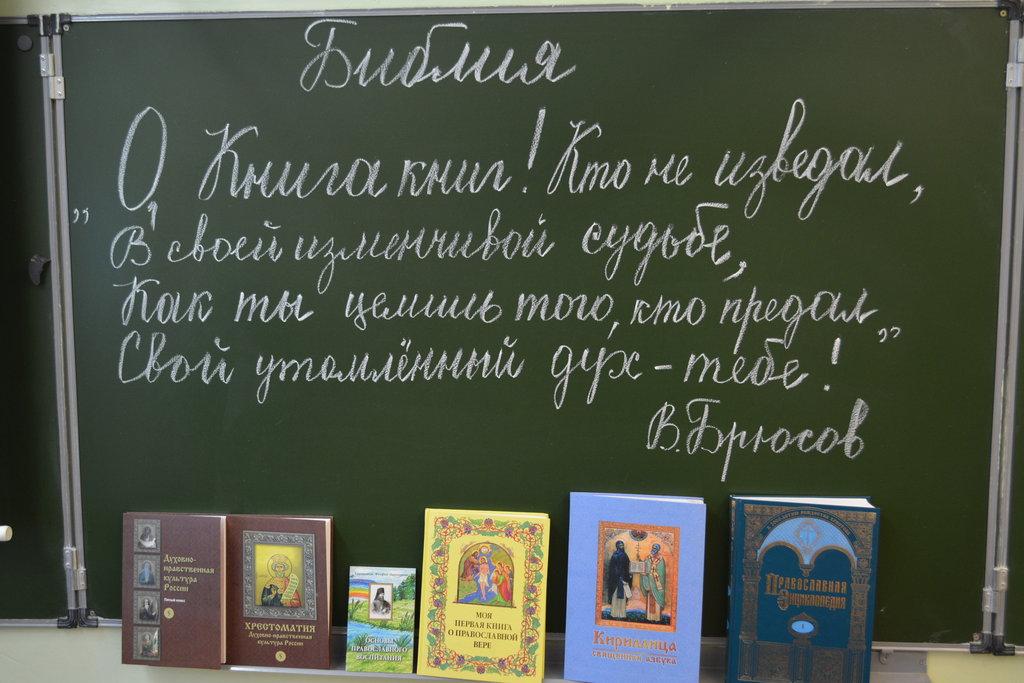 Библия
„О, Книга книг! Кто не изведал,
В своей изменчивой судьбе,
Как ты целишь того, кто предал
Свой утомлённый дух – тебе!”
В. Брюсов
Духовно-
нравственная
культура
России
5
ХРЕСТОМАТИЯ
Духовно-нравственная
культура России
5
ОСНОВЫ
ПРАВОСЛАВНОГО
ВОСПИТАНИЯ
МОЯ
ПЕРВАЯ КНИГА
О ПРАВОСЛАВНОЙ
ВЕРЕ
Кириллица
священная азбука
Православная
Энциклопедия
I